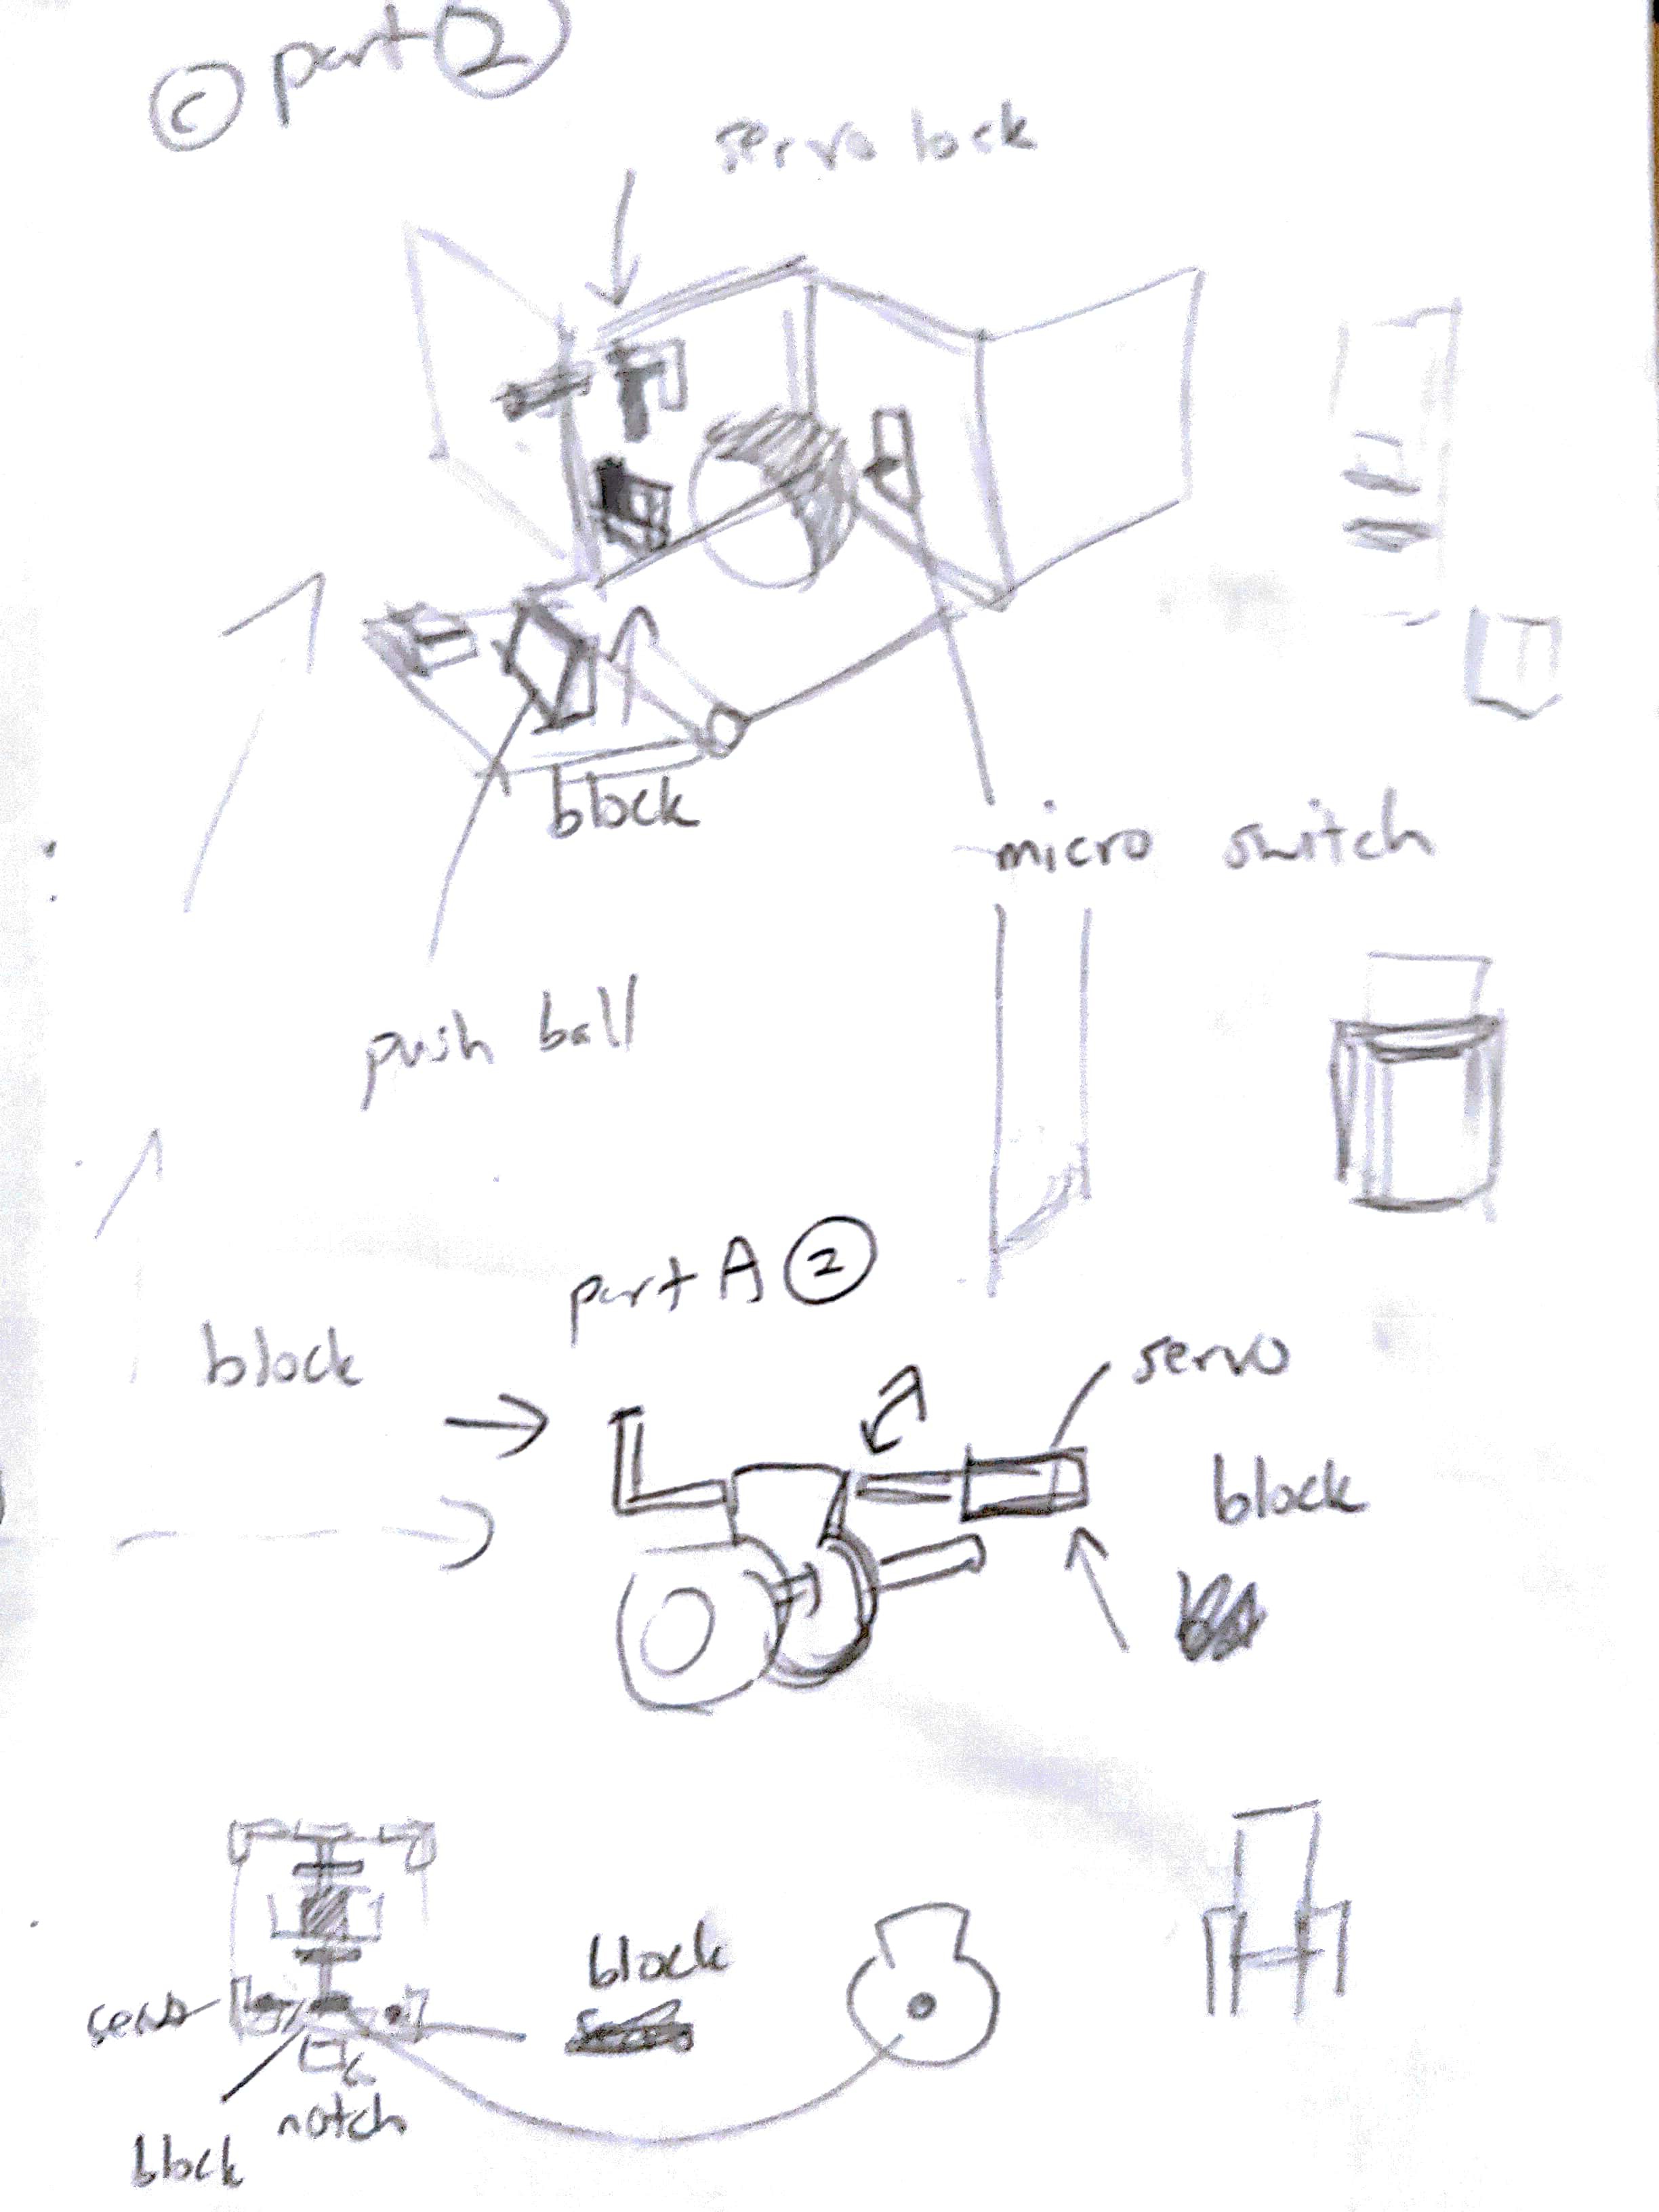 C part 2
servo lock
block
micro switch
push ball
part A 2
servo
block
block
block
servo
notch
block